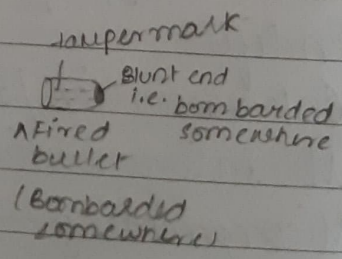 tampermark
Blunt end
i.e. bombarded
somewhere
A Fired
bullet
(Bombarded
somewhere)